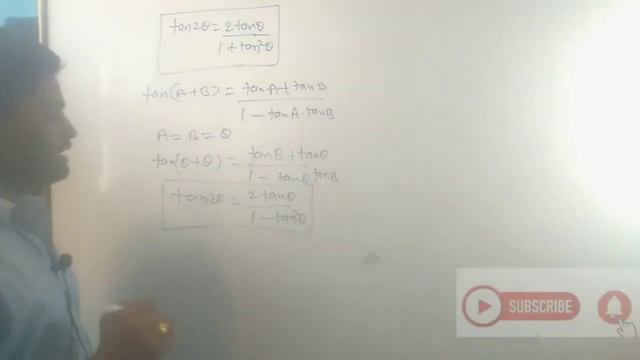 tan2θ = 2tanθ / 1 + tan²θ
tan(A+B) = tanA + tanB / 1 - tanA·tanB
A = B = θ
tan(θ+θ) = tanθ + tanθ / 1 - tanθ tanB
tan2θ = 2tanθ / 1 - tan²θ
SUBSCRIBE